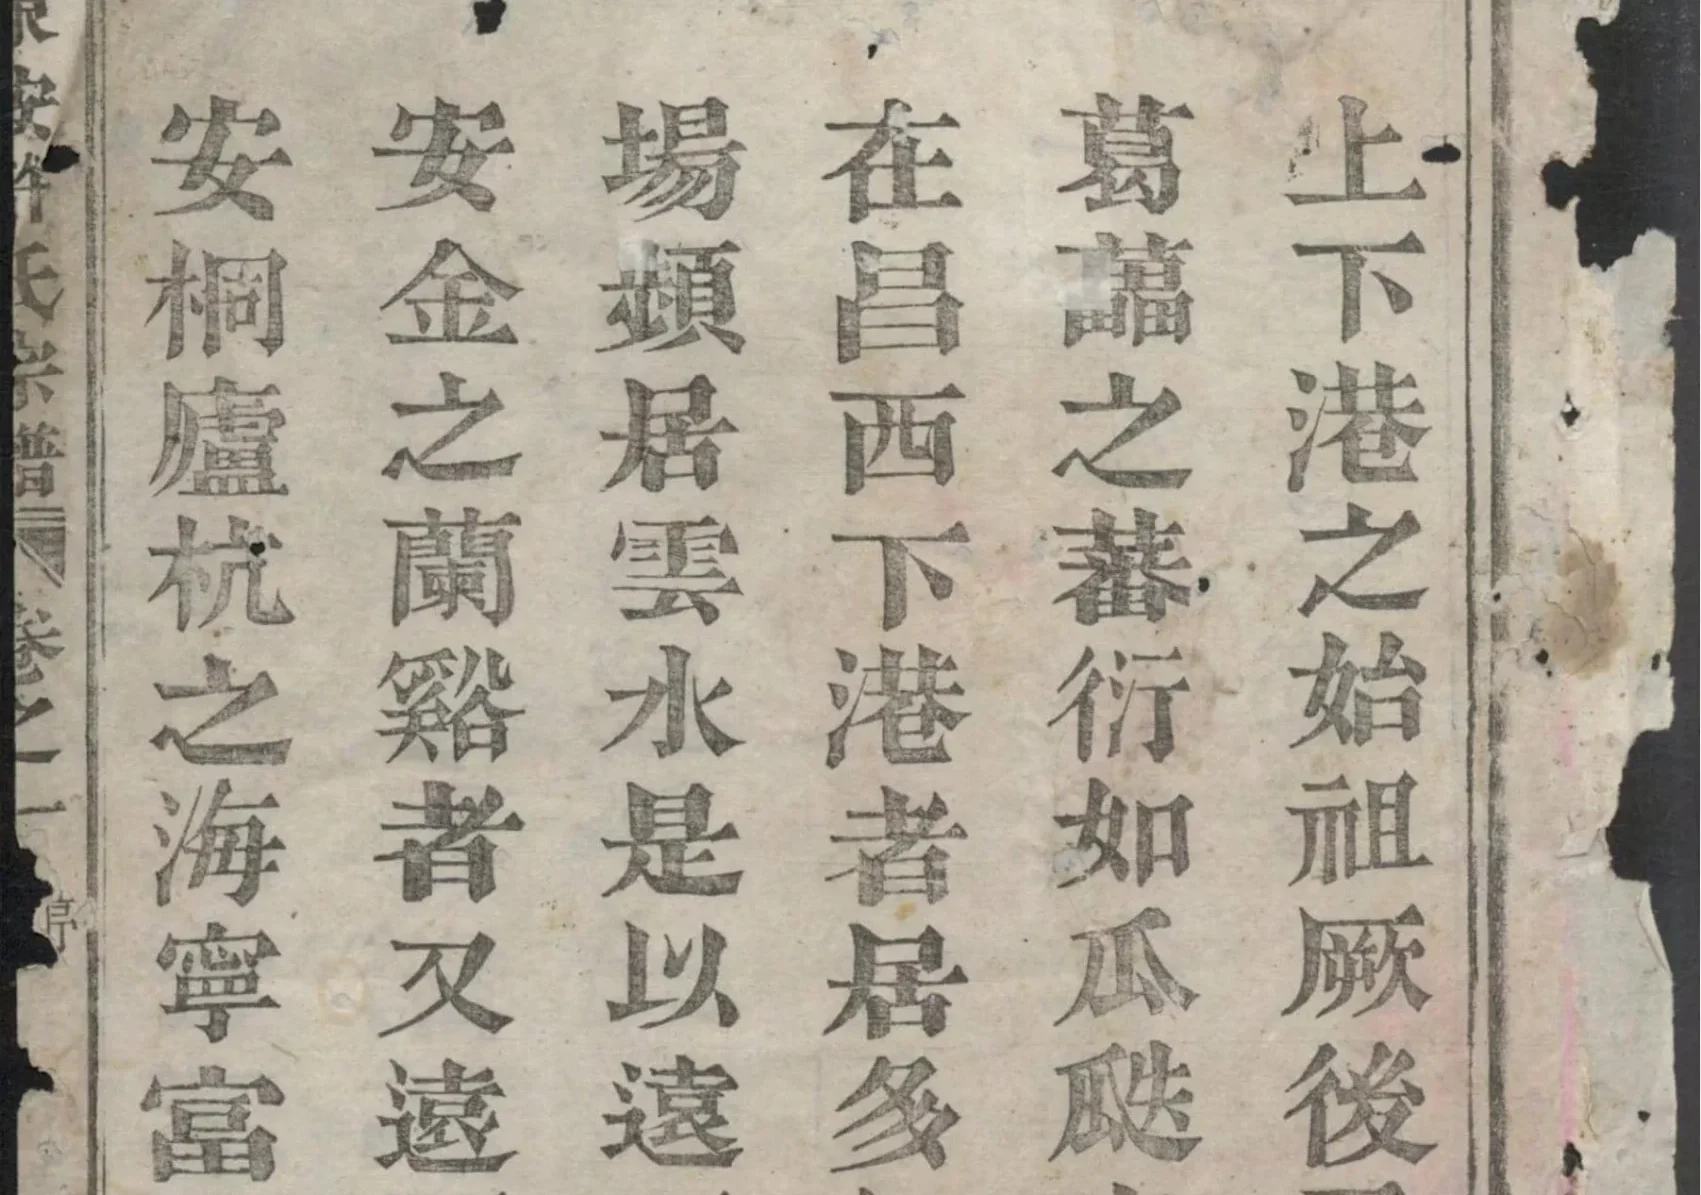 上下港之始祖厥後
葛藟之蕃衍如瓜瓞
在昌西下港者居多
場居雲水是以遠
安金之蘭谿者又遠
安桐廬杭之海寧富
安許氏宗譜 卷之一 序